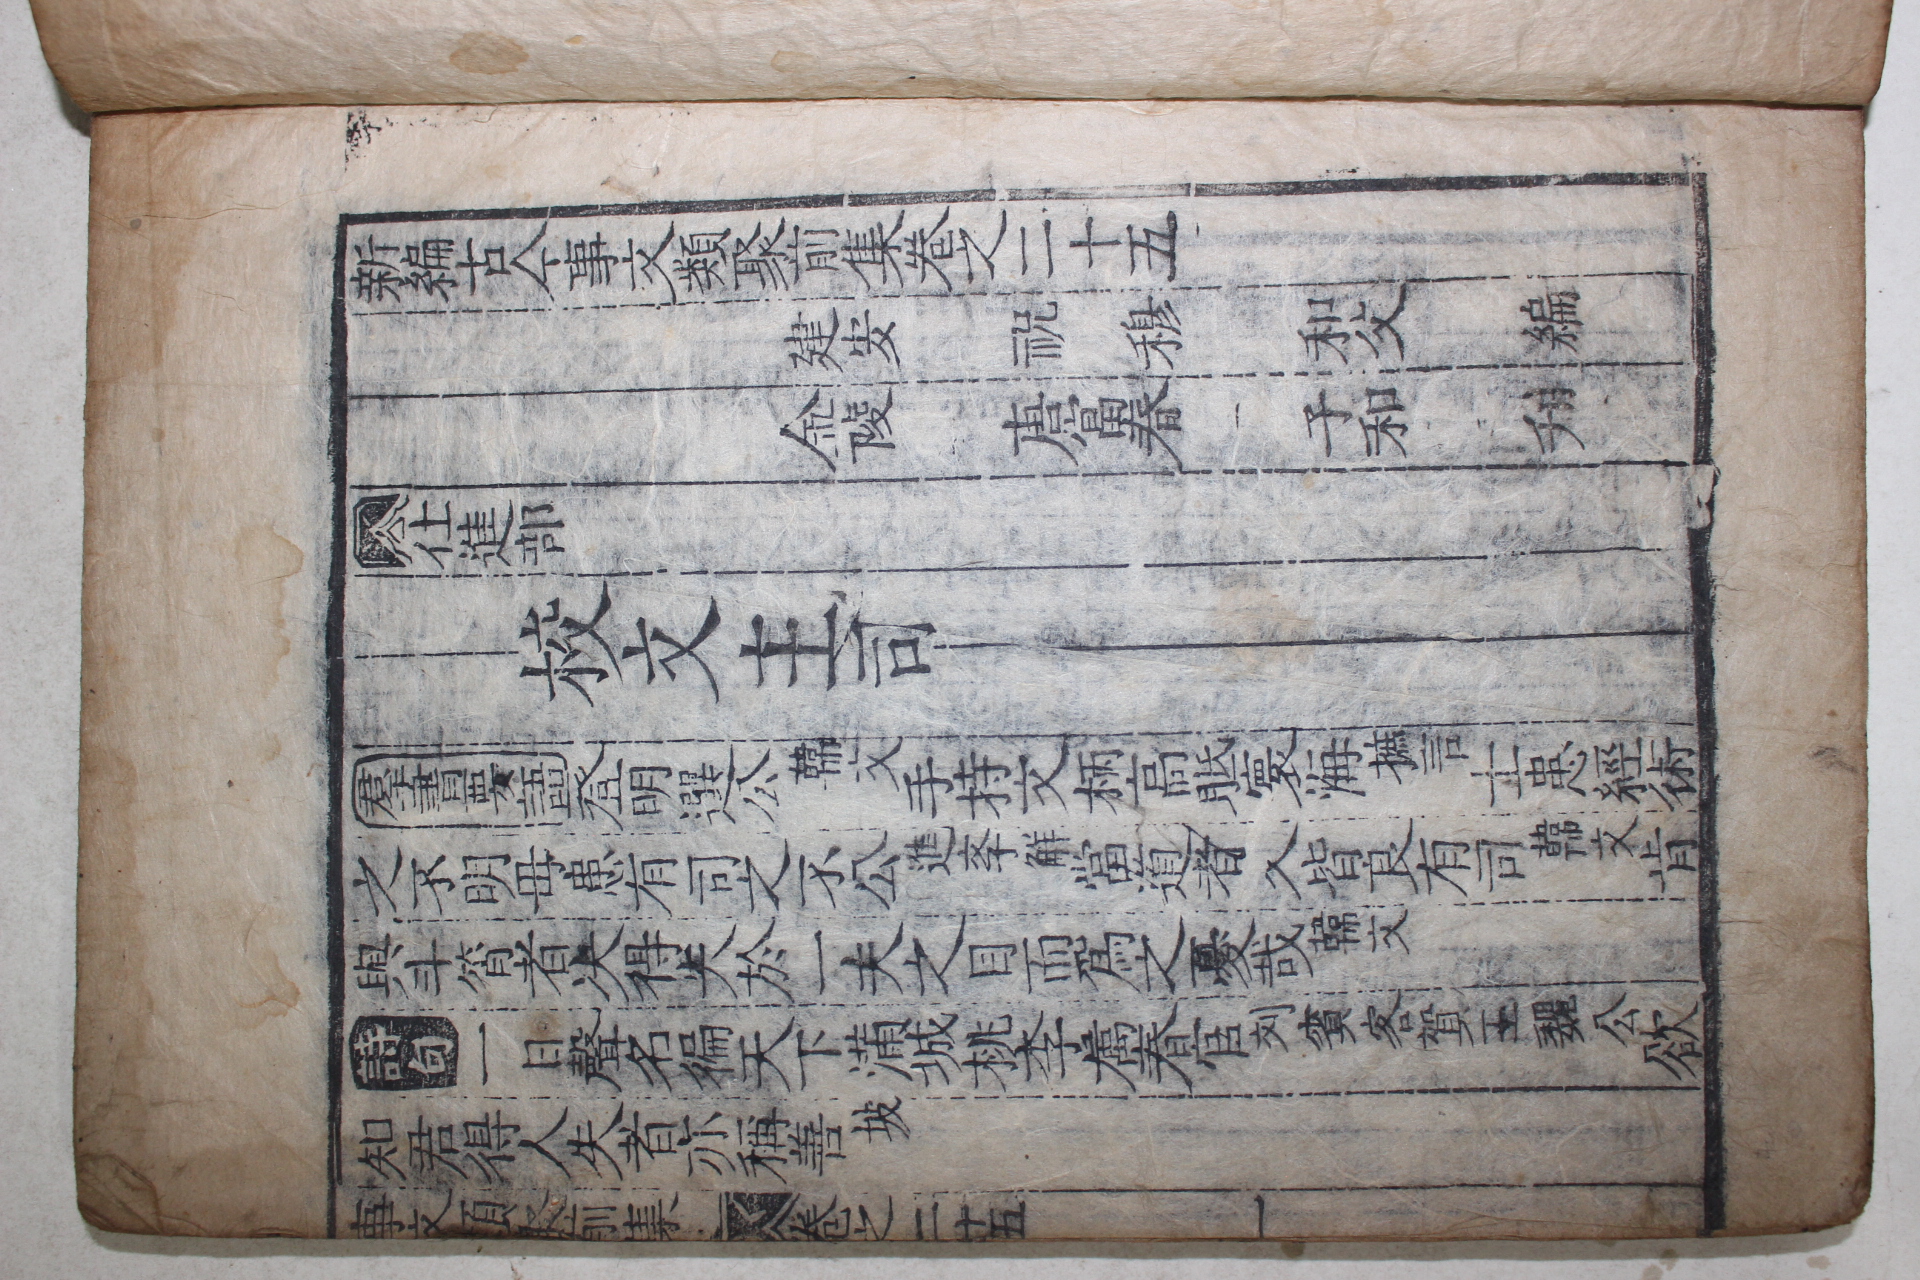 新編古今事文類聚前集卷之二十五
建安 祝 穆 和父 編
金陵 唐富春 子和 刋
仕進部
校文主司
羣書要語登明選公韓文手持文柄高眡寰海摭言士患經術
之不明毋患有司之不公進孝解當道者又皆良有司韓文肯
與斗筲者决得失於一夫之目而爲之憂哉韓文
詩句一日聲名徧天下滿城桃李屬春官刘賓客賀王魏公欲
知君得人失者亦稱善坡
事文類聚前集 卷之二十五 一